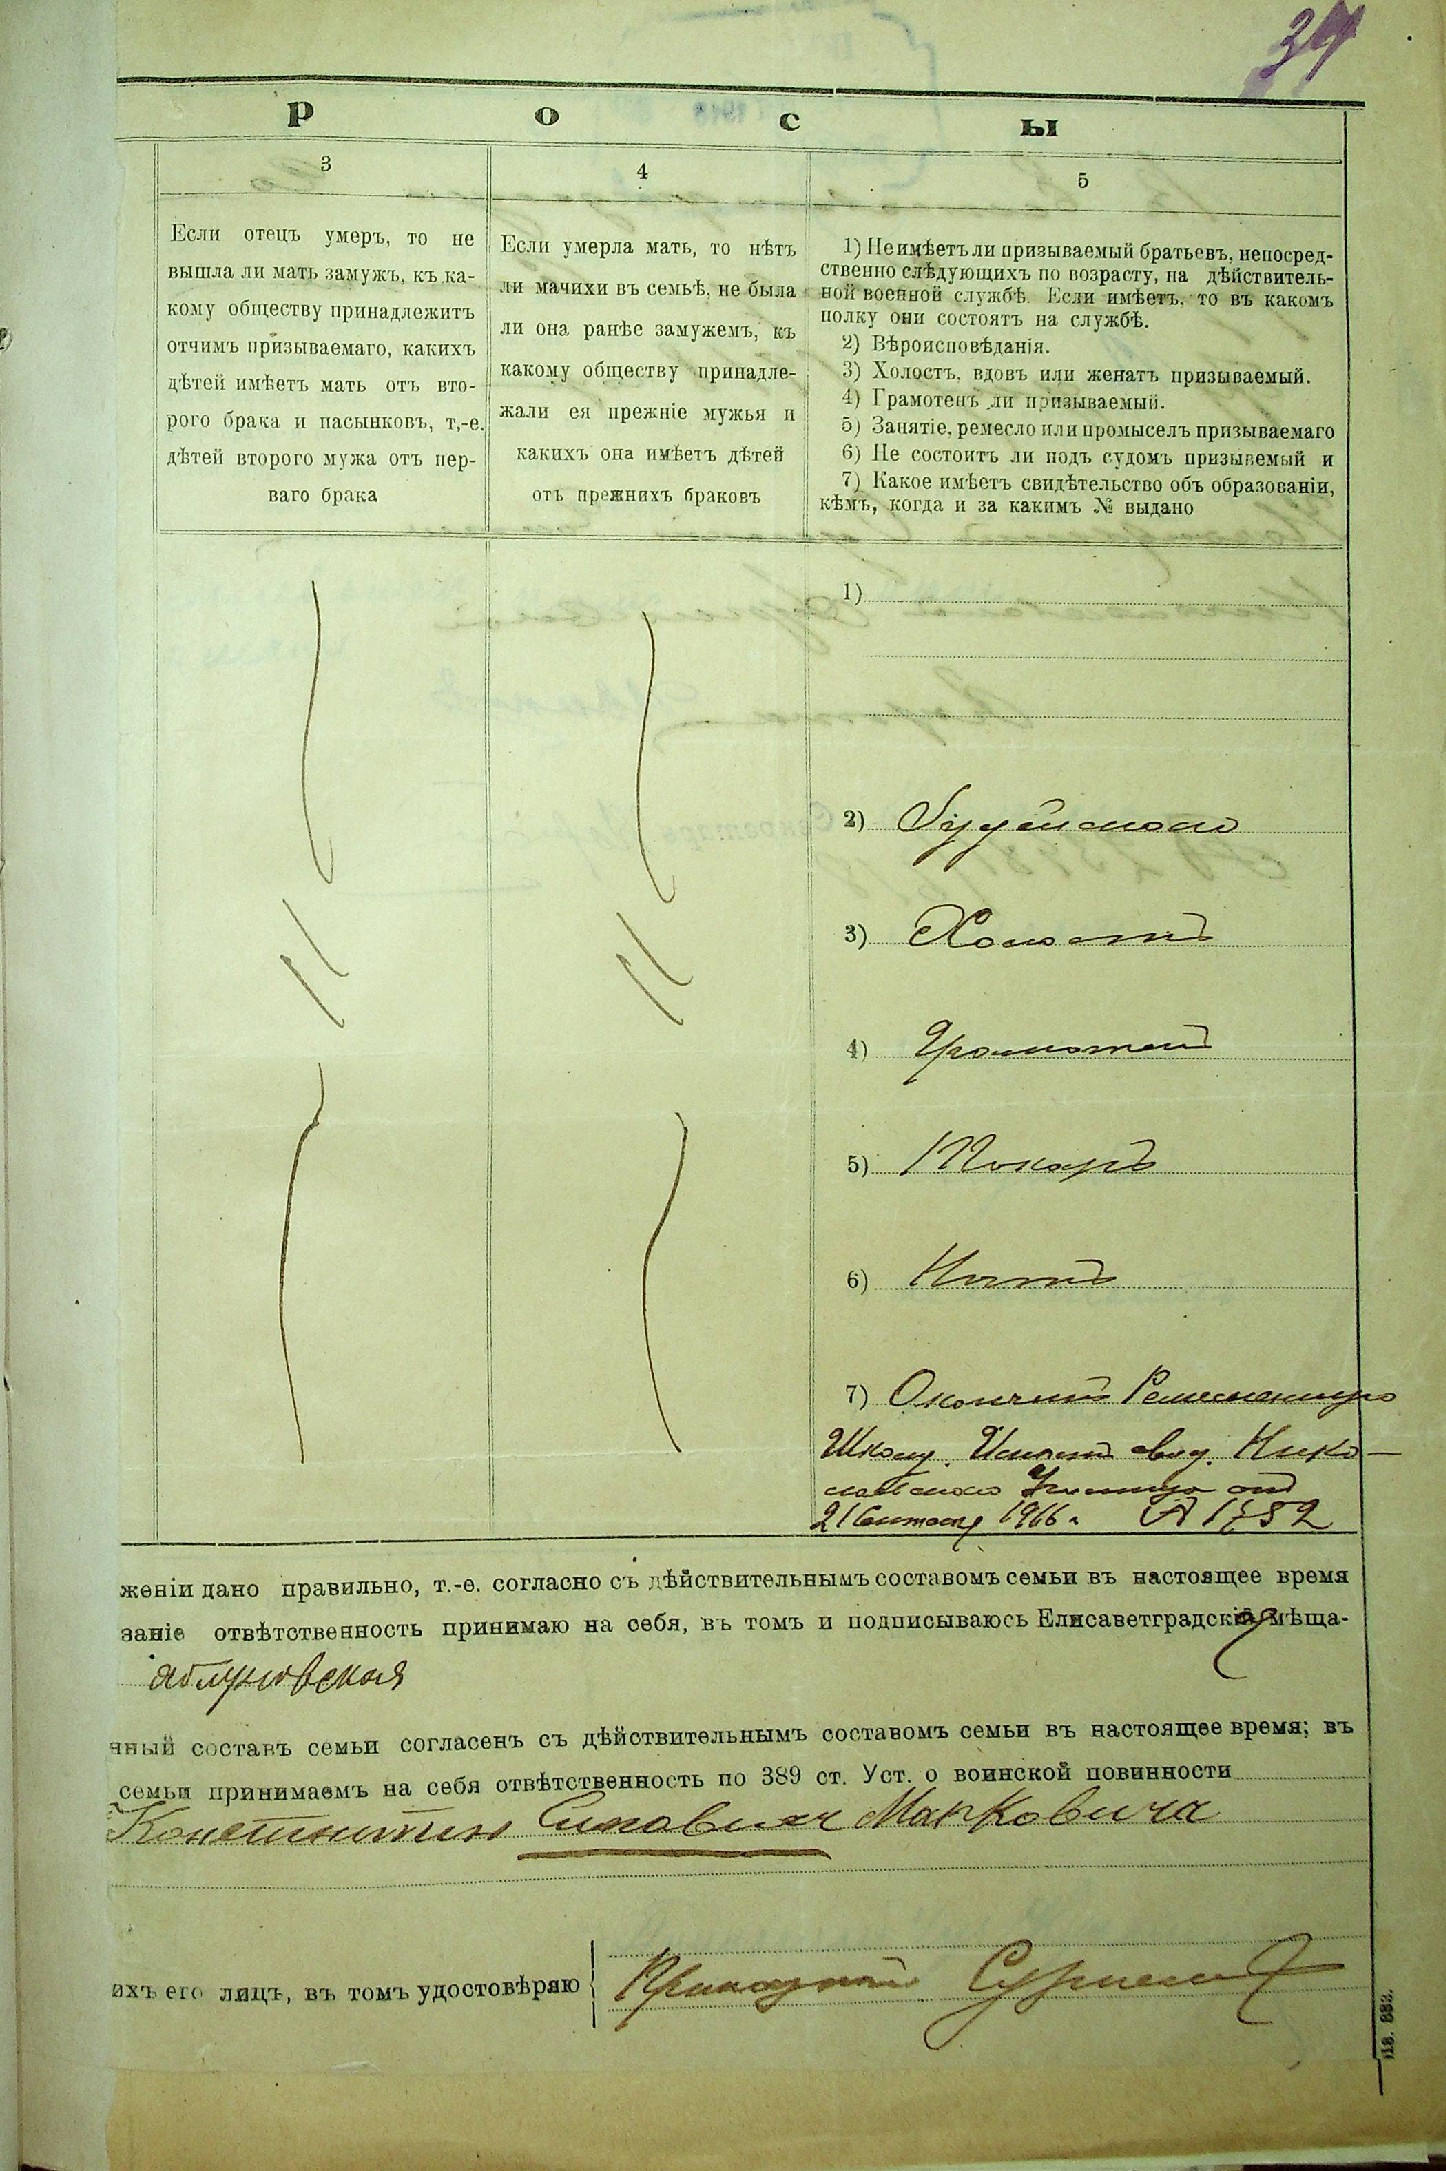 34
р о с ы
3
Если отецъ умеръ, то не
вышла ли мать замужъ, къ ка-
кому обществу принадлежитъ
отчимъ призываемаго, какихъ
дѣтей имѣетъ мать отъ вто-
рого брака и пасынковъ, т.-е.
дѣтей второго мужа отъ пер-
ваго брака
4
Если умерла мать, то нѣтъ
ли мачихи въ семьѣ, не была
ли она ранѣе замужемъ, къ
какому обществу принадле-
жали ея прежніе мужья и
какихъ она имѣетъ дѣтей
отъ прежнихъ браковъ
5
1) Не имѣетъ ли призываемый братьевъ, непосред-
ственно слѣдующихъ по возрасту, на дѣйствитель-
ной военной службѣ. Если имѣетъ, то въ какомъ
полку они состоятъ на службѣ.
2) Вѣроисповѣданія.
3) Холостъ, вдовъ или женатъ призываемый.
4) Грамотенъ ли призываемый.
5) Занятіе, ремесло или промыселъ призываемаго
6) Не состоитъ ли подъ судомъ призываемый и
7) Какое имѣетъ свидѣтельство объ образованіи,
кѣмъ, когда и за какимъ № выдано
1)
2) Іудейскаго
3) Холостъ
4) Грамотенъ
5) Токарь
6) Нѣтъ
7) Окончилъ Ремесленную
Школу. Нико-
лаевскаго Училища отъ
21 1916 г. №
женіи дано правильно, т.-е. согласно съ дѣйствительнымъ составомъ семьи въ настоящее время
заніе отвѣтственность принимаю на себя, въ томъ и подписываюсь Елисаветградскій мѣща-
нный составъ семьи согласенъ съ дѣйствительнымъ составомъ семьи въ настоящее время; въ
семьи принимаемъ на себя отвѣтственность по 389 ст. Уст. о воинской повинности
Константин Марковича
ихъ его лицъ, въ томъ удостовѣряю